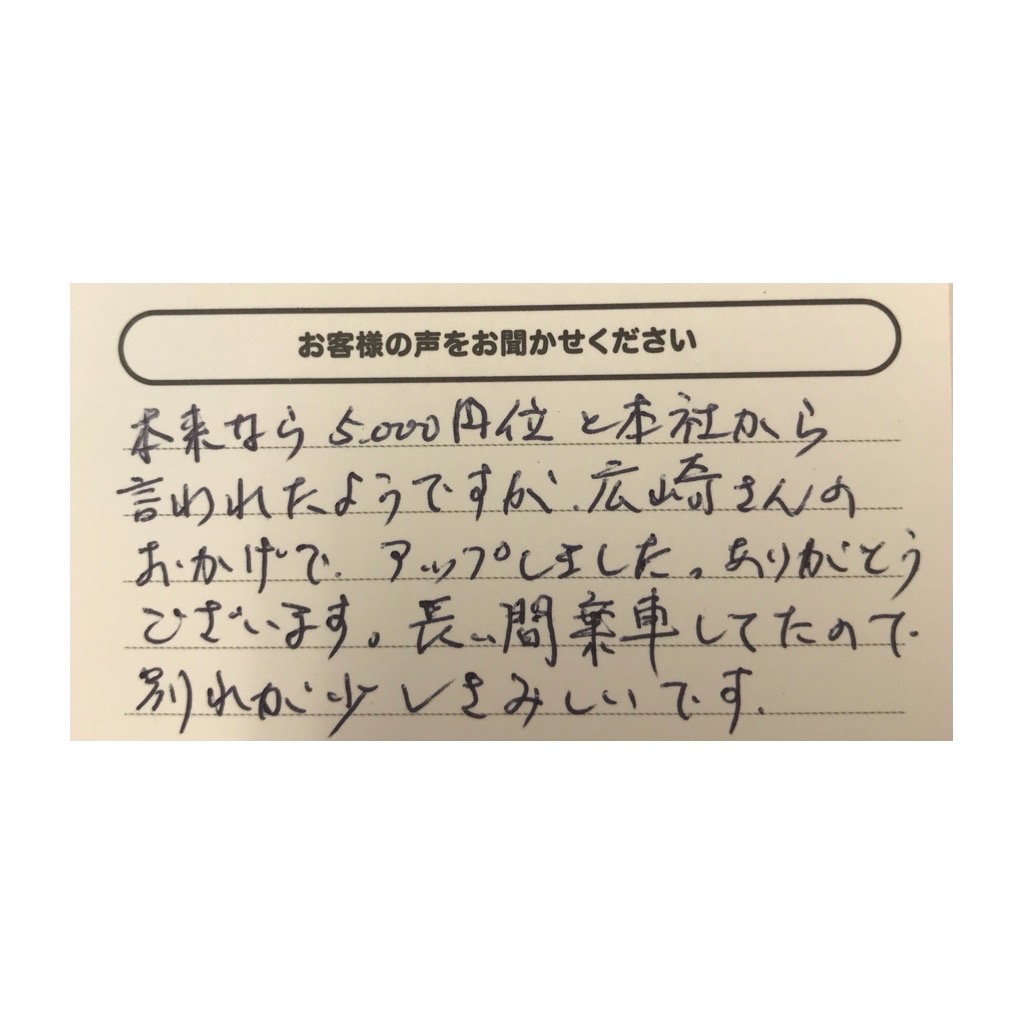 お客様の声をお聞かせください
本来なら5,000円位と本社から
言われたようですが、広崎さんの
おかげで、アップしました。ありがとう
ございます。長い間乗車してたので
別れが少しさみしいです。